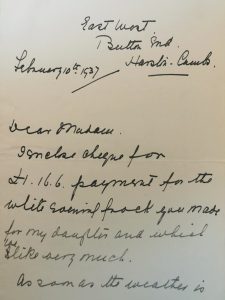 East West
Button End.
Harston-Cambs.
February 10th 1937
Dear Madam.
I enclose cheque for
£1.16.6. payment for the
white Evening frock you made
for my daughter and which
she like very much.
As soon as the weather is